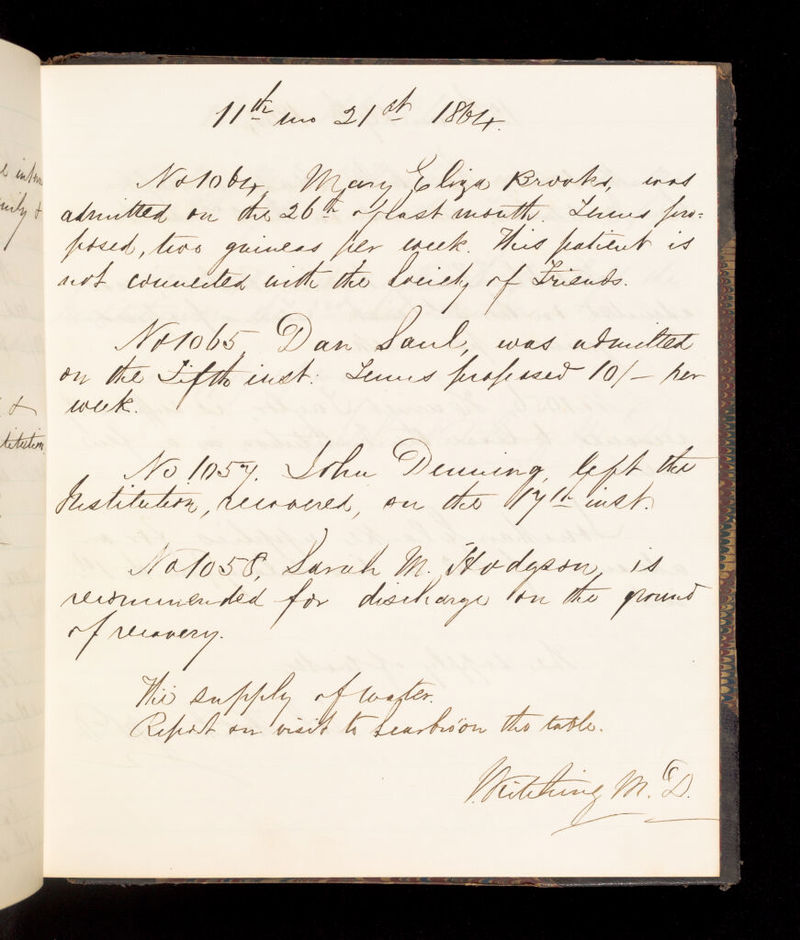 11th mo 21st 1864.
No 1064, Mary Eliza Brooks, was
admitted on the 26th of last month. Terms pro=
posed, two guineas per week. This patient is
not connected with the Society of Friends.
No 1065, Dan Saul, was admitted
on the Fifth inst: Terms proposed 10/- per
week.
No 1057. John Denning, left the
Institution, recovered, on the 17th inst.
No 1058, Sarah M. Hodgson, is
recommended for discharge on the ground
of recovery.
The supply of water.
Report on visit to Scarbro' on the table.
J. Kitching M.D.
e
&